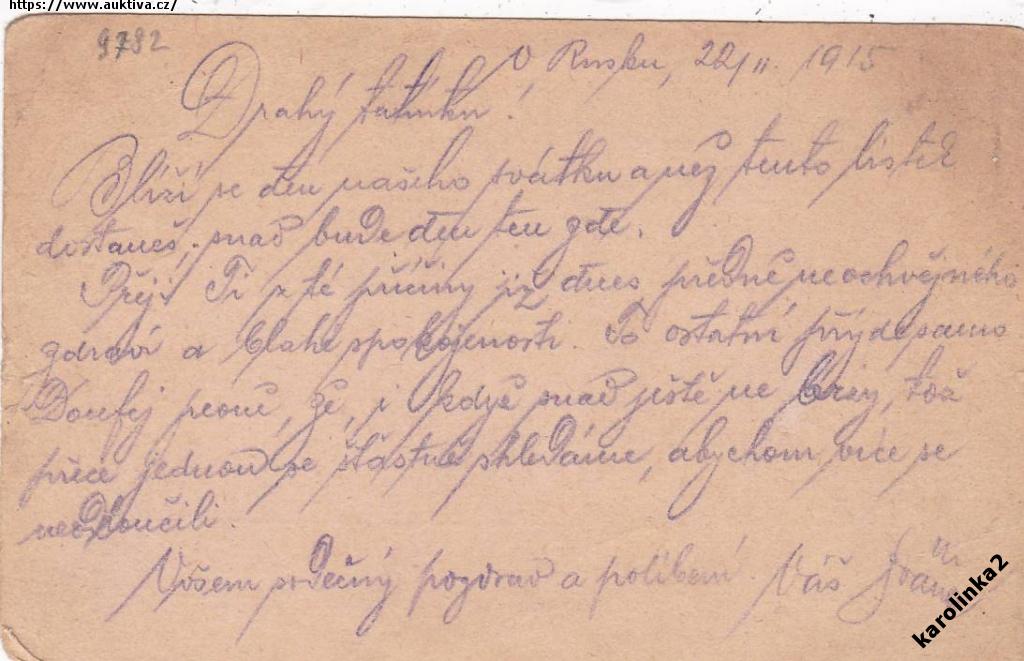 https://www.auktiva.cz/
9792
V Rusku, 22/II. 1915
Drahý tatínku!
Blíží se den našeho svátku a než tento lístek
dostaneš, snad bude den ten zde.
Přeji Ti z té příčiny již dnes předně neochvějného
zdraví a blaha spokojenosti. To ostatní přijde samo
Doufej pevně, že, i když snad ještě ne brzy, tož
přece jednou se šťastně shledáme, abychom více se
neodloučili.
Všem srdečný pozdrav a políbení. Váš
karolinka2